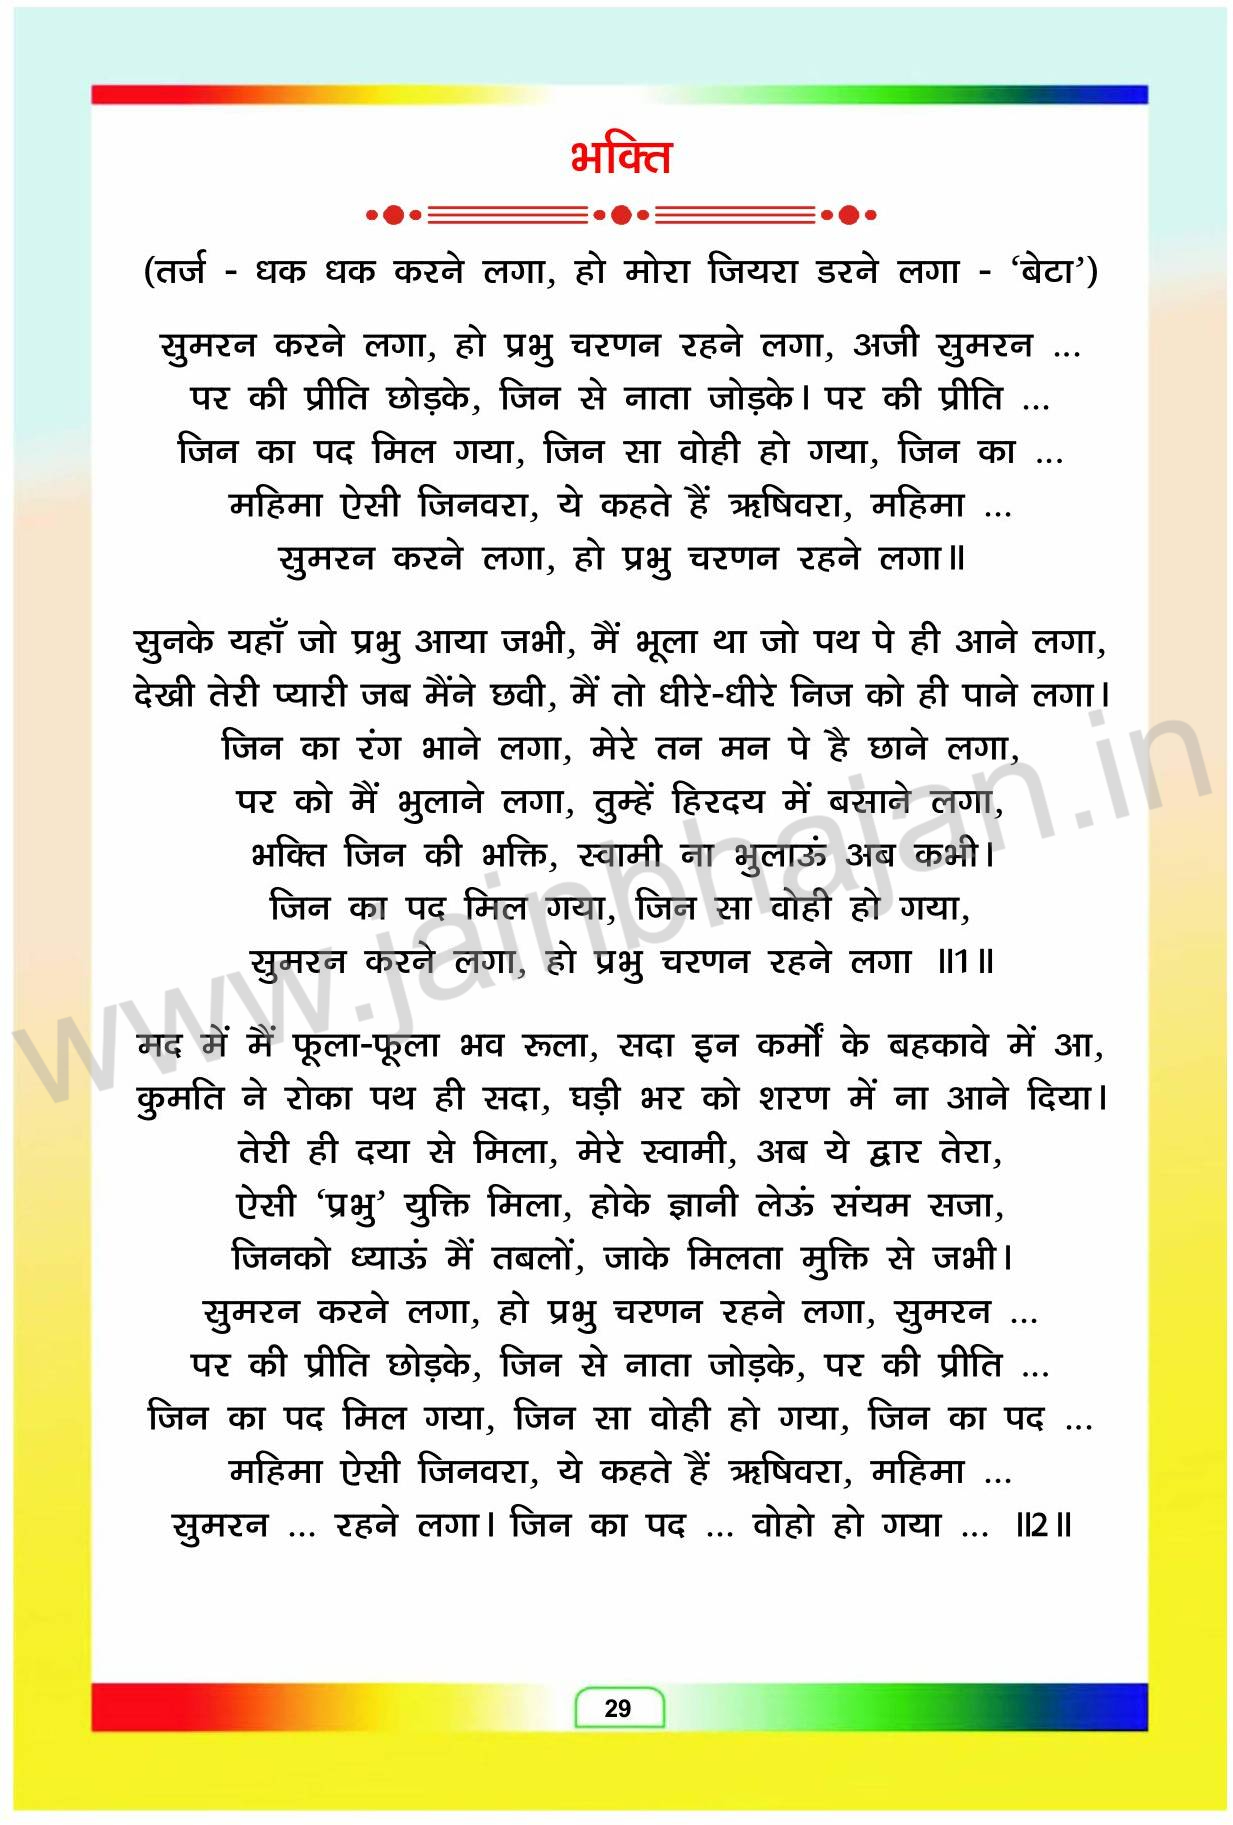 भक्ति
(तर्ज - धक धक करने लगा, हो मोरा जियरा डरने लगा - ‘बेटा’)
सुमरन करने लगा, हो प्रभु चरणन रहने लगा, अजी सुमरन ...
पर की प्रीति छोड़के, जिन से नाता जोड़के। पर की प्रीति ...
जिन का पद मिल गया, जिन सा वोही हो गया, जिन का ...
महिमा ऐसी जिनवरा, ये कहते हैं ऋषिवरा, महिमा ...
सुमरन करने लगा, हो प्रभु चरणन रहने लगा॥
सुनके यहाँ जो प्रभु आया जभी, मैं भूला था जो पथ पे ही आने लगा,
देखी तेरी प्यारी जब मैंने छवी, मैं तो धीरे-धीरे निज को ही पाने लगा।
जिन का रंग भाने लगा, मेरे तन मन पे है छाने लगा,
पर को मैं भुलाने लगा, तुम्हें हिरदय में बसाने लगा,
भक्ति जिन की भक्ति, स्वामी ना भुलाऊं अब कभी।
जिन का पद मिल गया, जिन सा वोही हो गया,
सुमरन करने लगा, हो प्रभु चरणन रहने लगा ॥1॥
www.jainbhajan.in
मद में मैं फूला-फूला भव रूला, सदा इन कर्मों के बहकावे में आ,
कुमति ने रोका पथ ही सदा, घड़ी भर को शरण में ना आने दिया।
तेरी ही दया से मिला, मेरे स्वामी, अब ये द्वार तेरा,
ऐसी ‘प्रभु’ युक्ति मिला, होके ज्ञानी लेऊं संयम सजा,
जिनको ध्याऊं मैं तबलों, जाके मिलता मुक्ति से जभी।
सुमरन करने लगा, हो प्रभु चरणन रहने लगा, सुमरन ...
पर की प्रीति छोड़के, जिन से नाता जोड़के, पर की प्रीति ...
जिन का पद मिल गया, जिन सा वोही हो गया, जिन का पद ...
महिमा ऐसी जिनवरा, ये कहते हैं ऋषिवरा, महिमा ...
सुमरन ... रहने लगा। जिन का पद ... वोहो हो गया ... ॥2॥
29